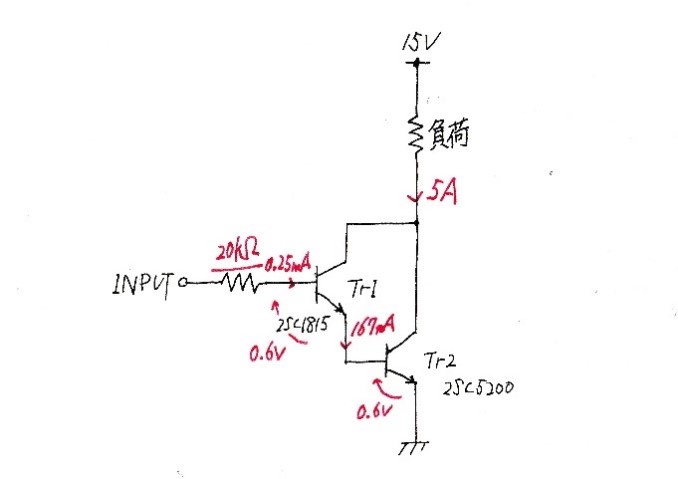 15V
負荷
5A
20kΩ
0.25mA
INPUT
Tr1
2SC1815
167mA
0.6V
Tr2
2SC5200
0.6V